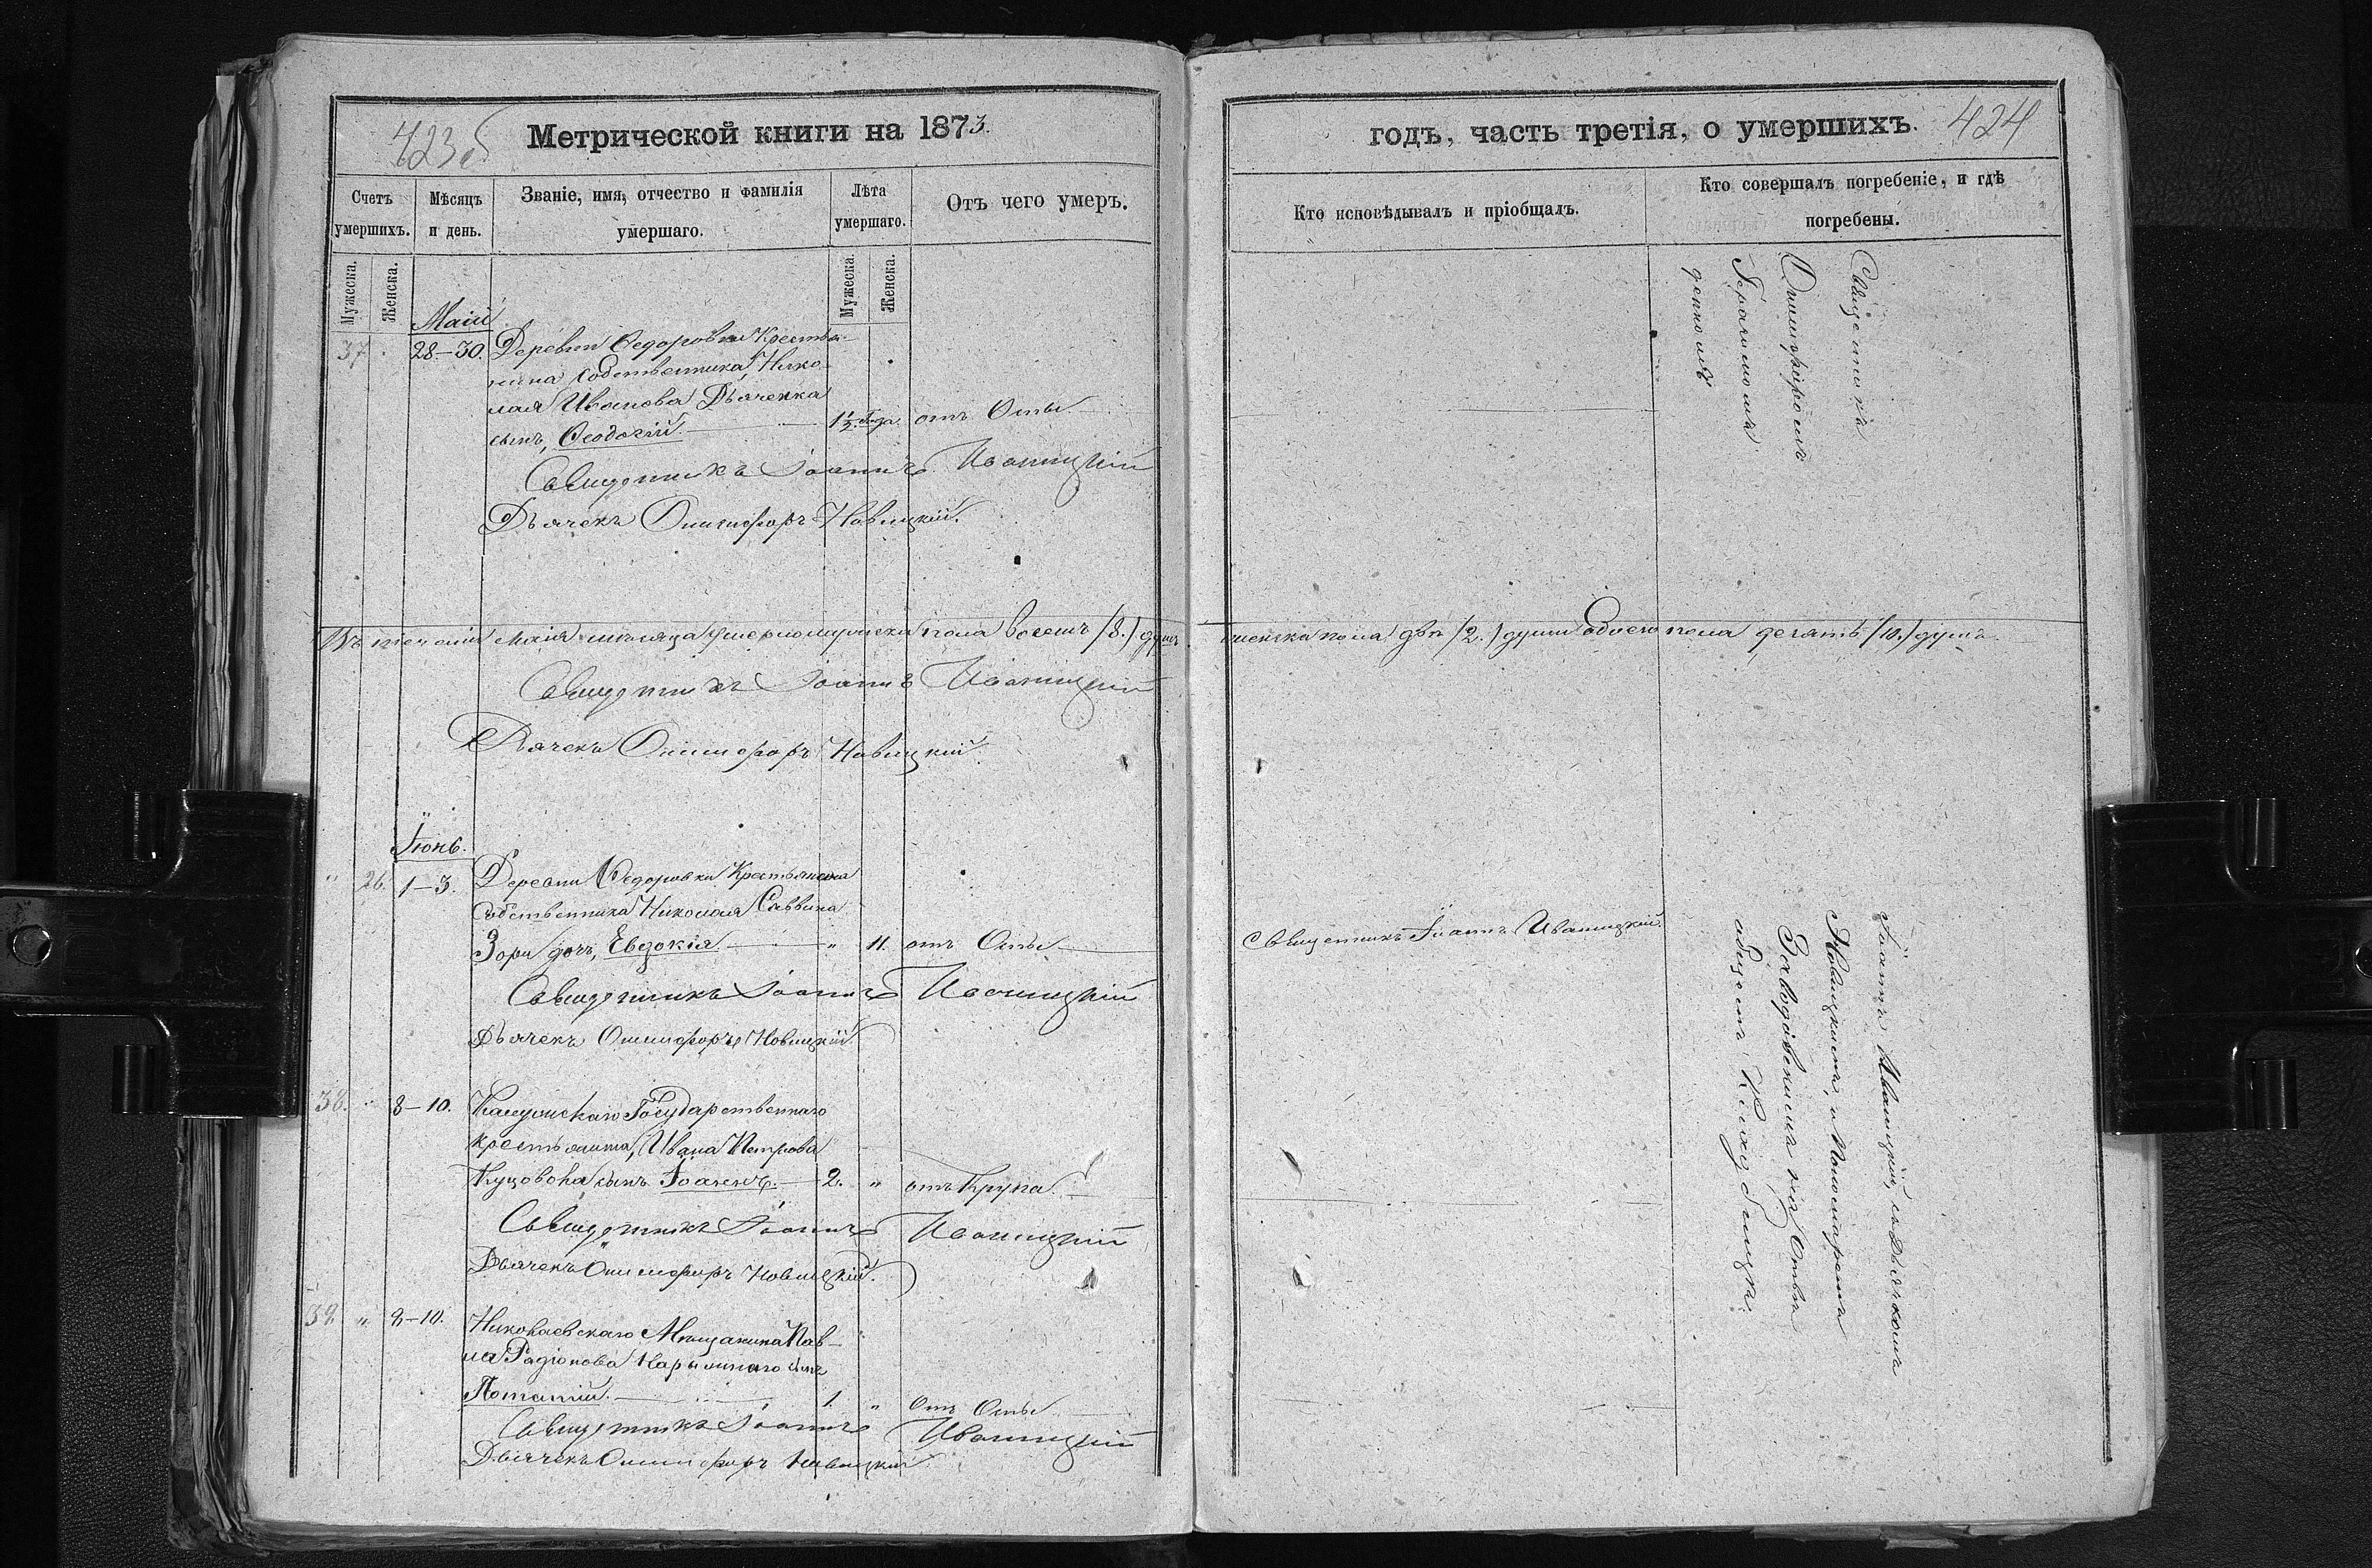 423 об
Метрической книги на 1873.
Счетъ умершихъ.
Мѣсяцъ и день.
Званіе, имя, отчество и фамилія умершаго.
Лѣта умершаго.
Отъ чего умеръ.
Мужеска.
Женска.
Мужеска.
Женска.
Маій
37 28–30. Деревни Ѳедоровки Крестья-
нина собственника, Нико-
лая Иванова Дьяченка
сынъ, Ѳеодосій. 1½ года отъ Оспы
Священникъ Іоаннъ Иваницкій
Дьячекъ Онисифоръ Новицкій.
Въ теченіи Маія мѣсяца умерло мужеска пола восемь /8./ душъ
Священникъ Іоаннъ Иваницкій
Дьячекъ Онисифоръ Новицкій.
Іюнь.
" 26. 1–3. Деревни Ѳедоровки Крестьянина
Собственника Николая Саввина
Зори дочь, Евдокія " 11. отъ Оспы
Священникъ Іоаннъ Иваницкій
Дьячекъ Онисифоръ Новицкій
38. " 8–10. Государственнаго
крестьянина, Ивана Петрова
сынъ Іоаннъ. 2. " отъ Крупа.
Священникъ Іоаннъ Иваницкій
Дьячекъ Онисифоръ Новицкій.
39 " 8–10. Николаевскаго Мѣщанина Пав-
ла Радіонова сынъ
1. " Отъ Оспы
Священникъ Іоаннъ Иваницкій
Дьячекъ Онисифоръ Новицкій
424
годъ, часть третія, о умершихъ.
Кто исповѣдывалъ и пріобщалъ.
Кто совершалъ погребеніе, и гдѣ погребены.
Священникъ
женска пола двѣ /2./ души обоего пола десять /10./ душъ
Священникъ Іоаннъ Иваницкій
Іоаннъ Иваницкій, съ Дьячкомъ
Новицкимъ, и Пономаремъ
на
кладбищѣ